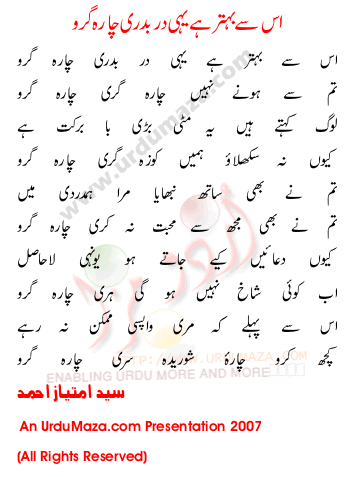 اس سے بہتر ہے یہی در بدری چارہ گرو
اس سے بہتر ہے یہی در بدری چارہ گرو
تم سے ہونے نہیں چارہ گری چارہ گرو
لوگ کہتے ہیں یہ مٹی بڑی با برکت ہے
کیوں نہ سکھلاؤ ہمیں کوزہ گری چارہ گرو
تم نے بھی ساتھ نبھایا مرا ہمدردی میں
تم نے بھی مجھ سے محبت نہ کری چارہ گرو
کیوں دعائیں کیے جاتے ہو یونہی لاحاصل
اب کوئی شاخ نہیں ہو گی ہری چارہ گرو
اس سے پہلے کہ مری واپسی ممکن نہ رہے
کچھ کرو چارۂ شوریدہ سری چارہ گرو
سید امتیاز احمد
An UrduMaza.com Presentation 2007
(All Rights Reserved)
www.urdumaza.com
اردو مزا
HTTP://WWW.URDUMAZA.COM
ENABLING URDU MORE AND MORE